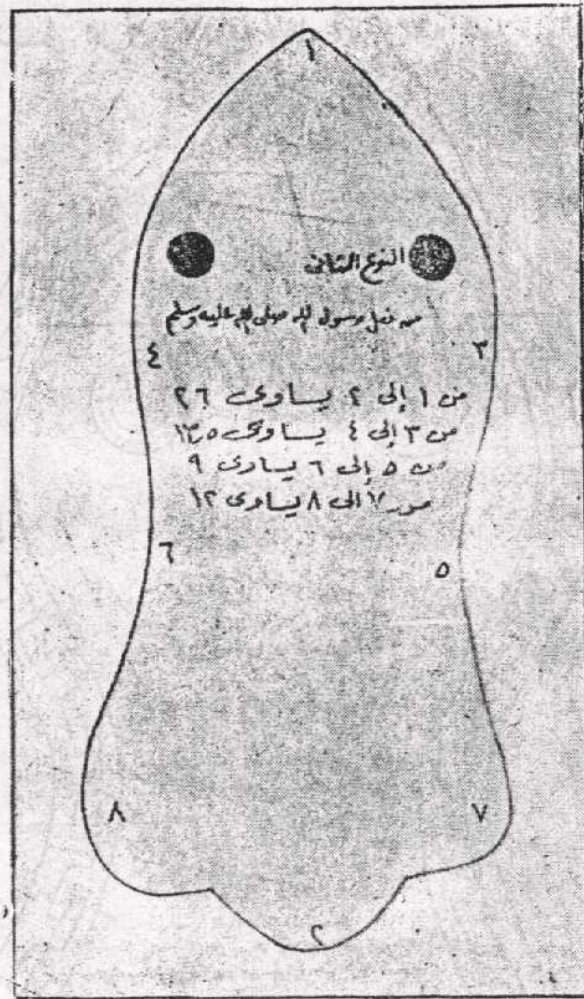 ١
النوع الثاني
من نعل رسول الله صلى الله عليه وسلم
٣ ٤
من ١ إلى ٢ يساوى ٢٦
من ٣ إلى ٤ يساوى
من ٥ إلى ٦ يساوى ٩
من ٧ الى ٨ يساوى ١٢
٥ ٦
٧ ٨
٢